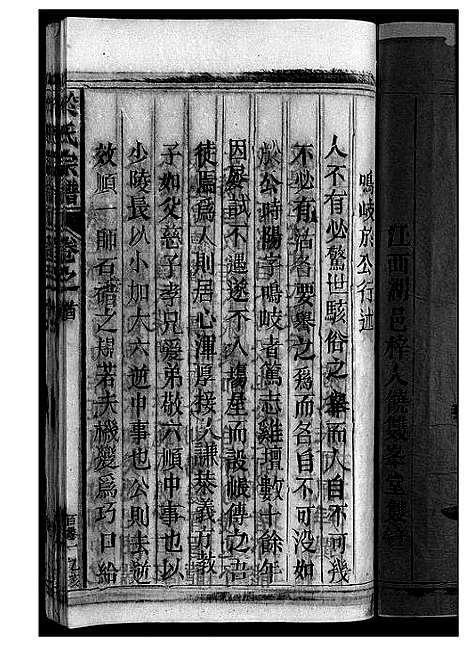 江西湖邑梓人饒
鳴岐於公行述
人不有必驚世駭俗之舉而人自不可幾
不必有沽名要譽之為而名自不可沒如
於公時陽字鳴岐者篤志雞壇數十餘年
因屢試不遇遂不入場屋而設帳傳之吾
徒焉為人則居心渾厚接人謙恭義方教
子如父慈子孝兄愛弟敬六順中事也以
少陵長以小加大六逆中事也公則去逆
效順一師石碏之規若夫機變為巧口給
於氏宗譜 卷之首